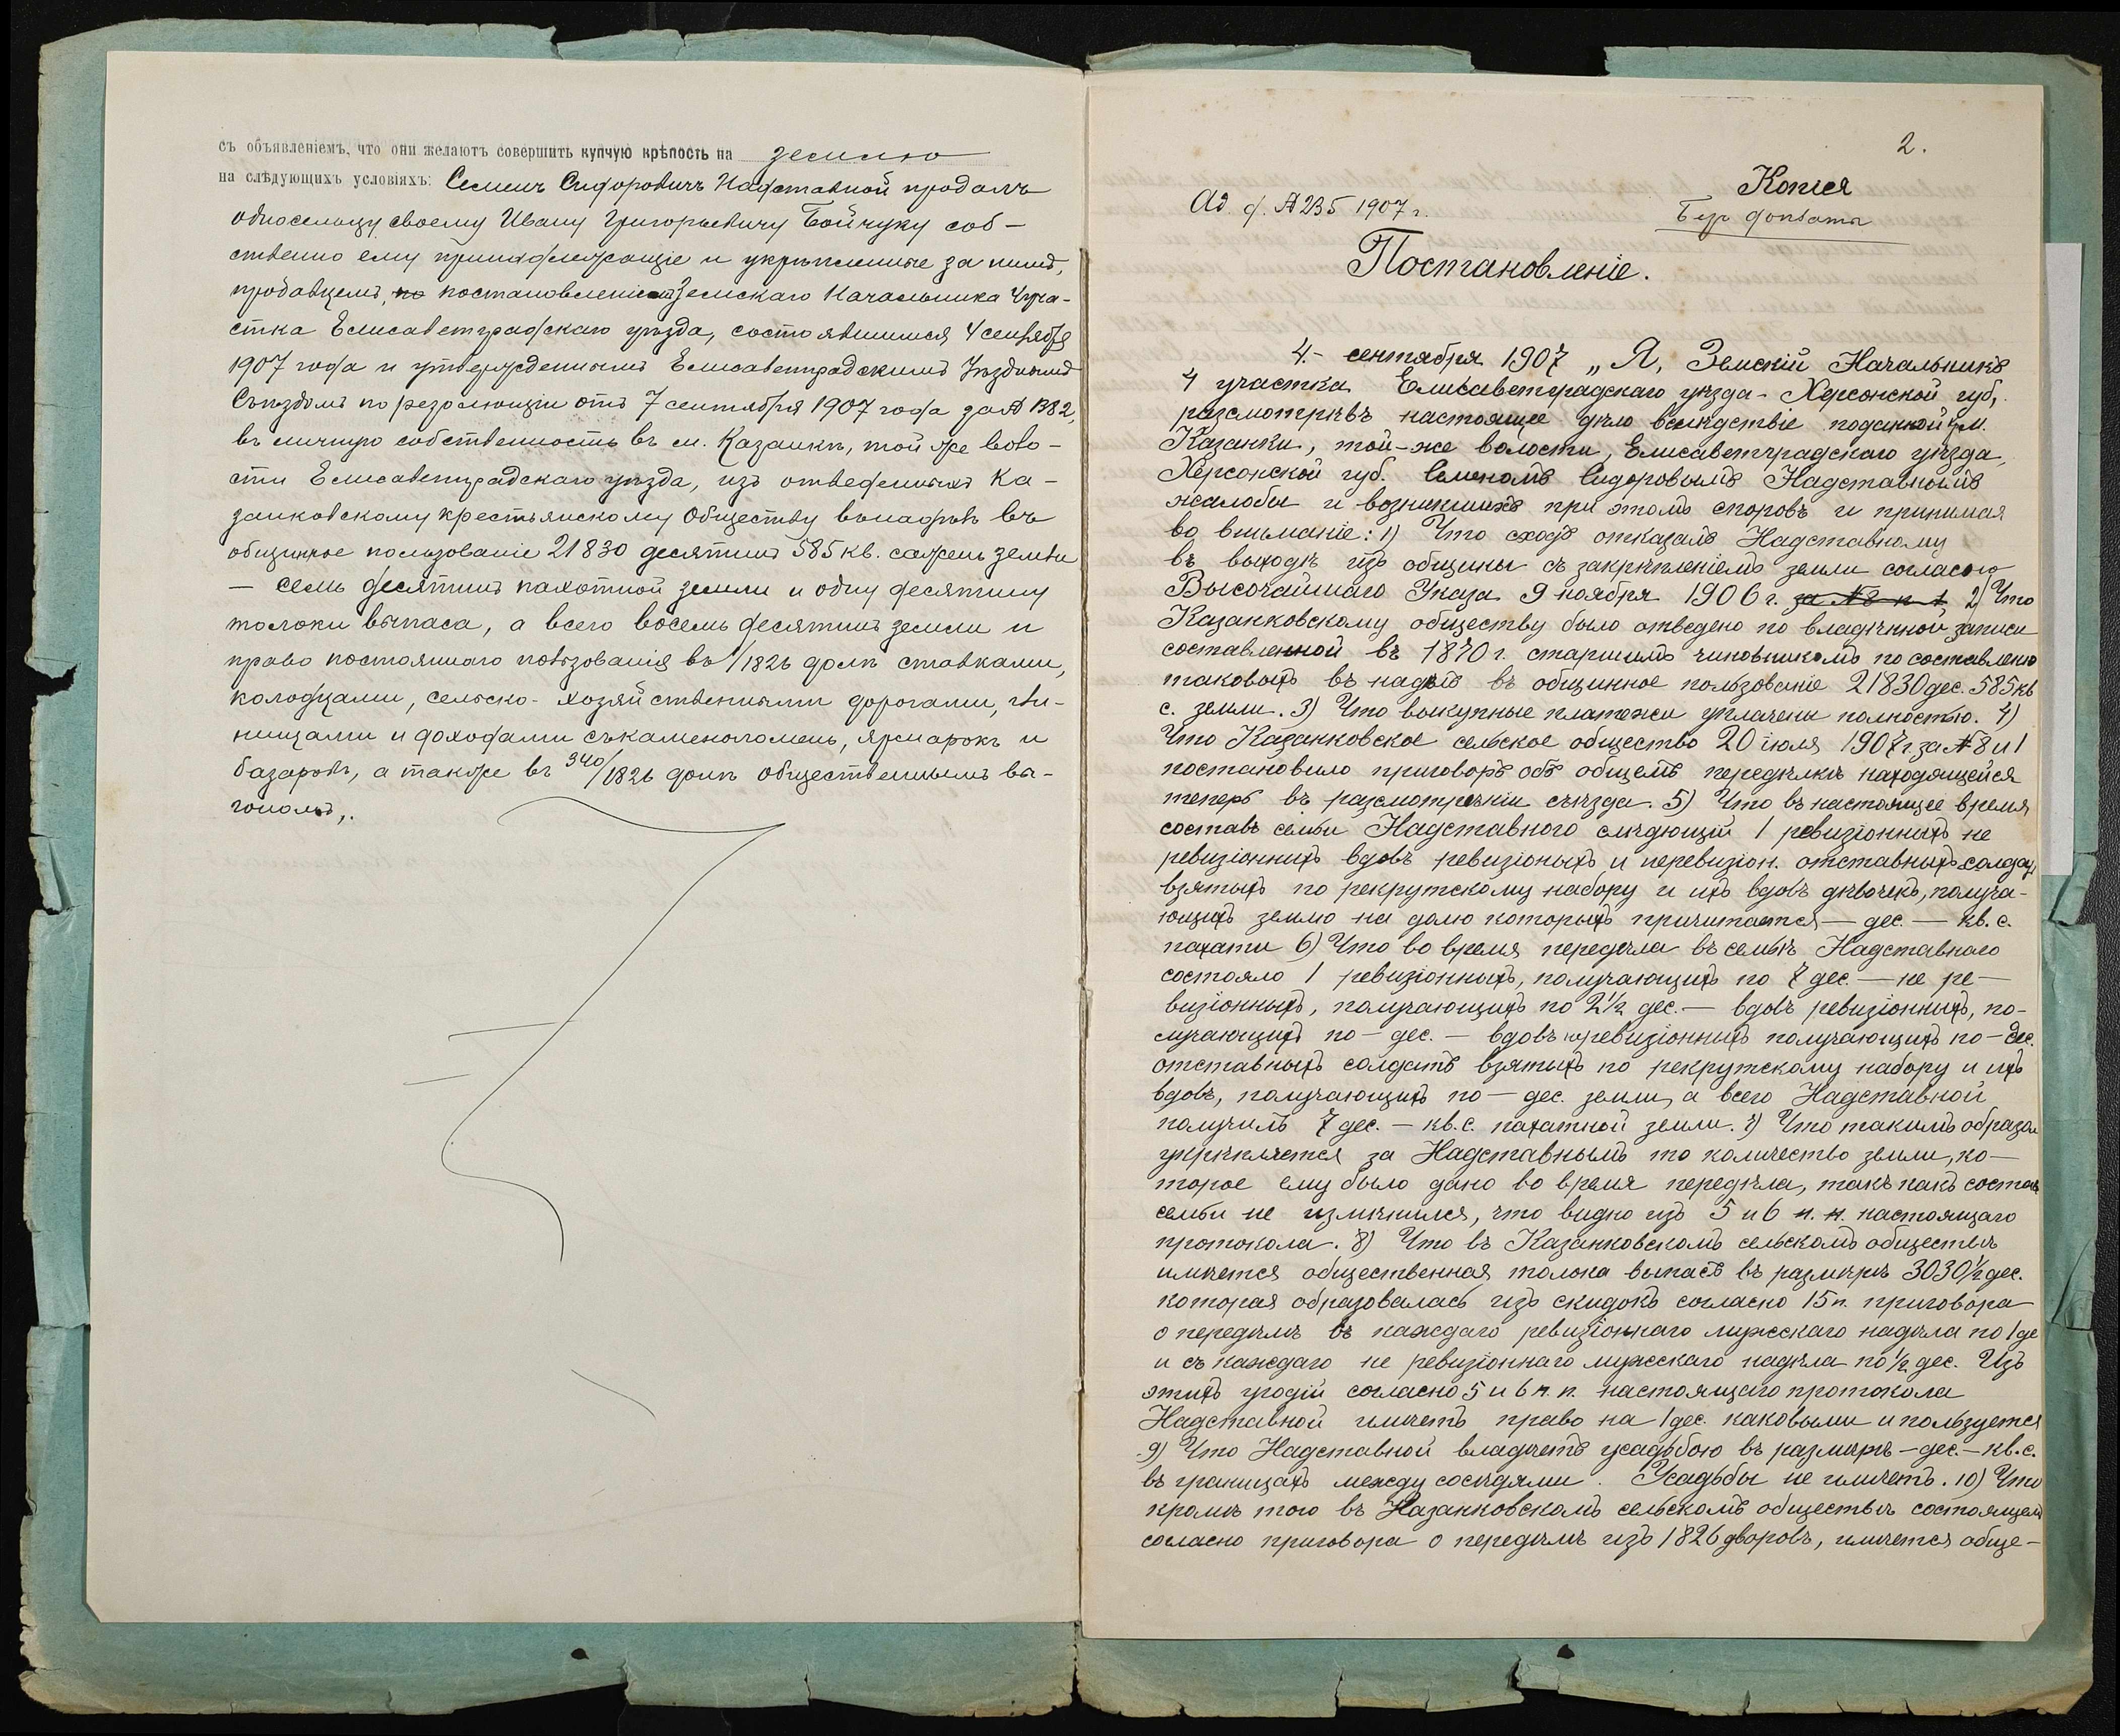 съ объявленіемъ, что они желаютъ совершить купчую крѣпость на землю
на слѣдующихъ условіяхъ: Семенъ Сидоровичъ Надставной продалъ
односельцу своему Ивану Григорьевичу Бойчуку соб-
ственно ему принадлежащіе и укрѣпленные за нимъ,
продавцемъ, по постановленіемъ Земскаго Начальника 4 уча-
стка Елисаветградскаго уѣзда, состоявшимся 4 сентября
1907 года и утвержденнымъ Елисаветградскимъ Уѣзднымъ
Съѣздомъ по резолюціи отъ 7 сентября 1907 года за № 1382,
въ личную собственность въ м. Казанкѣ, той же воло-
сти Елисаветградскаго уѣзда, изъ отведенныхъ Ка-
занковскому крестьянскому Обществу въ надѣлъ въ
общинное пользованіе 21830 десятинъ 585 кв. сажень земли
— семь десятинъ пахотной земли и одну десятину
толоки выпаса, а всего восемь десятинъ земли и
право постояннаго пользованія въ 1/1826 долѣ ставками,
колодцами, сельско-хозяйственными дорогами, гли-
нищами и доходами съ каменоломень, ярмарокъ и
базаровъ, а также въ 340/1826 долѣ общественнымъ вы-
гономъ,.
2.
Копія
Ад. д. № 235 1907 г.
Постановленіе.
4 - сентября 1907 „Я, Земскій Начальникъ
4 участка Елисаветградскаго уѣзда - Херсонской губ.,
разсмотрѣвъ настоящее дѣло вслѣдствіе поданной м.
Казанки, той-же волости, Елисаветградскаго уѣзда,
Херсонской губ. Семеномъ Сидоровымъ Надставнымъ
жалобы и возникшихъ при этомъ споровъ и принимая
во вниманіе: 1) Что сходъ отказалъ Надставному
въ выходѣ изъ общины съ закрѣпленіемъ земли согласно
Высочайшаго Указа 9 ноября 1906 г. 2) Что
Казанковскому обществу было отведено по владѣнной записи
составленной въ 1870 г. старшимъ чиновникомъ по составленію
таковыхъ въ надѣлъ въ общинное пользованіе 21830 дес. 585 кв
с. земли. 3) Что выкупные платежи уплачены полностью. 4)
Что Казанковское сельское общество 20 іюля 1907 г за № 8 и 1
постановило приговоръ объ общемъ передѣлѣ находящейся
теперь въ разсмотреніи съѣзда. 5) Что въ настоящее время
составъ семьи Надставного слѣдующій 1 ревизіонныхъ не
ревизіонныхъ вдовъ ревизіоныхъ и неревизіон. отставныхъ солдатъ
взятыхъ по рекрутскому набору и ихъ вдовъ дѣвочекъ, получа-
ющихъ землю на долю которыхъ причитается — дес. — кв. с.
пахати 6) Что во время передѣла въ семьѣ Надставнаго
состояло 1 ревизіонныхъ, получающихъ по 7 дес. — не ре-
визіонныхъ, получающихъ по 2½ дес. — вдовъ ревизіонныхъ, по-
лучающихъ по — дес. — вдовъ неревизіонныхъ получающихъ по — дес.
отставныхъ солдатъ взятыхъ по рекрутскому набору и ихъ
вдовъ, получающихъ по — дес. земли, а всего Надставной
получилъ 7 дес. — кв. с. пахатной земли. 7) Что такимъ образом
укрѣпляется за Надставнымъ то количество земли, ко-
торое ему было дано во время передѣла, такъ какъ составъ
семьи не измѣнился, что видно изъ 5 и 6 п. п. настоящаго
протокола. 8) Что въ Казанковскомъ сельскомъ обществѣ
имѣется общественная толока выпасъ въ размѣрѣ 3030½ дес.
которая образовалась изъ скидокъ согласно 15 п. приговора
о передѣлѣ съ каждаго ревизіоннаго мужескаго надѣла по 1 де
и съ каждаго не ревизіоннаго мужескаго надѣла по ½ дес. Изъ
этихъ угодій согласно 5 и 6 п. п. настоящаго протокола
Надставной имѣетъ право на 1 дес. каковыми и пользуется
9) Что Надставной владѣетъ усадьбою въ размѣрѣ — дес. — кв. с.
въ границахъ между сосѣдями. Усадьбы не имѣетъ. 10) Что
кромѣ того въ Казанковскомъ сельскомъ обществѣ состоящемъ
согласно приговора о передѣлѣ изъ 1826 дворовъ, имѣется обще-